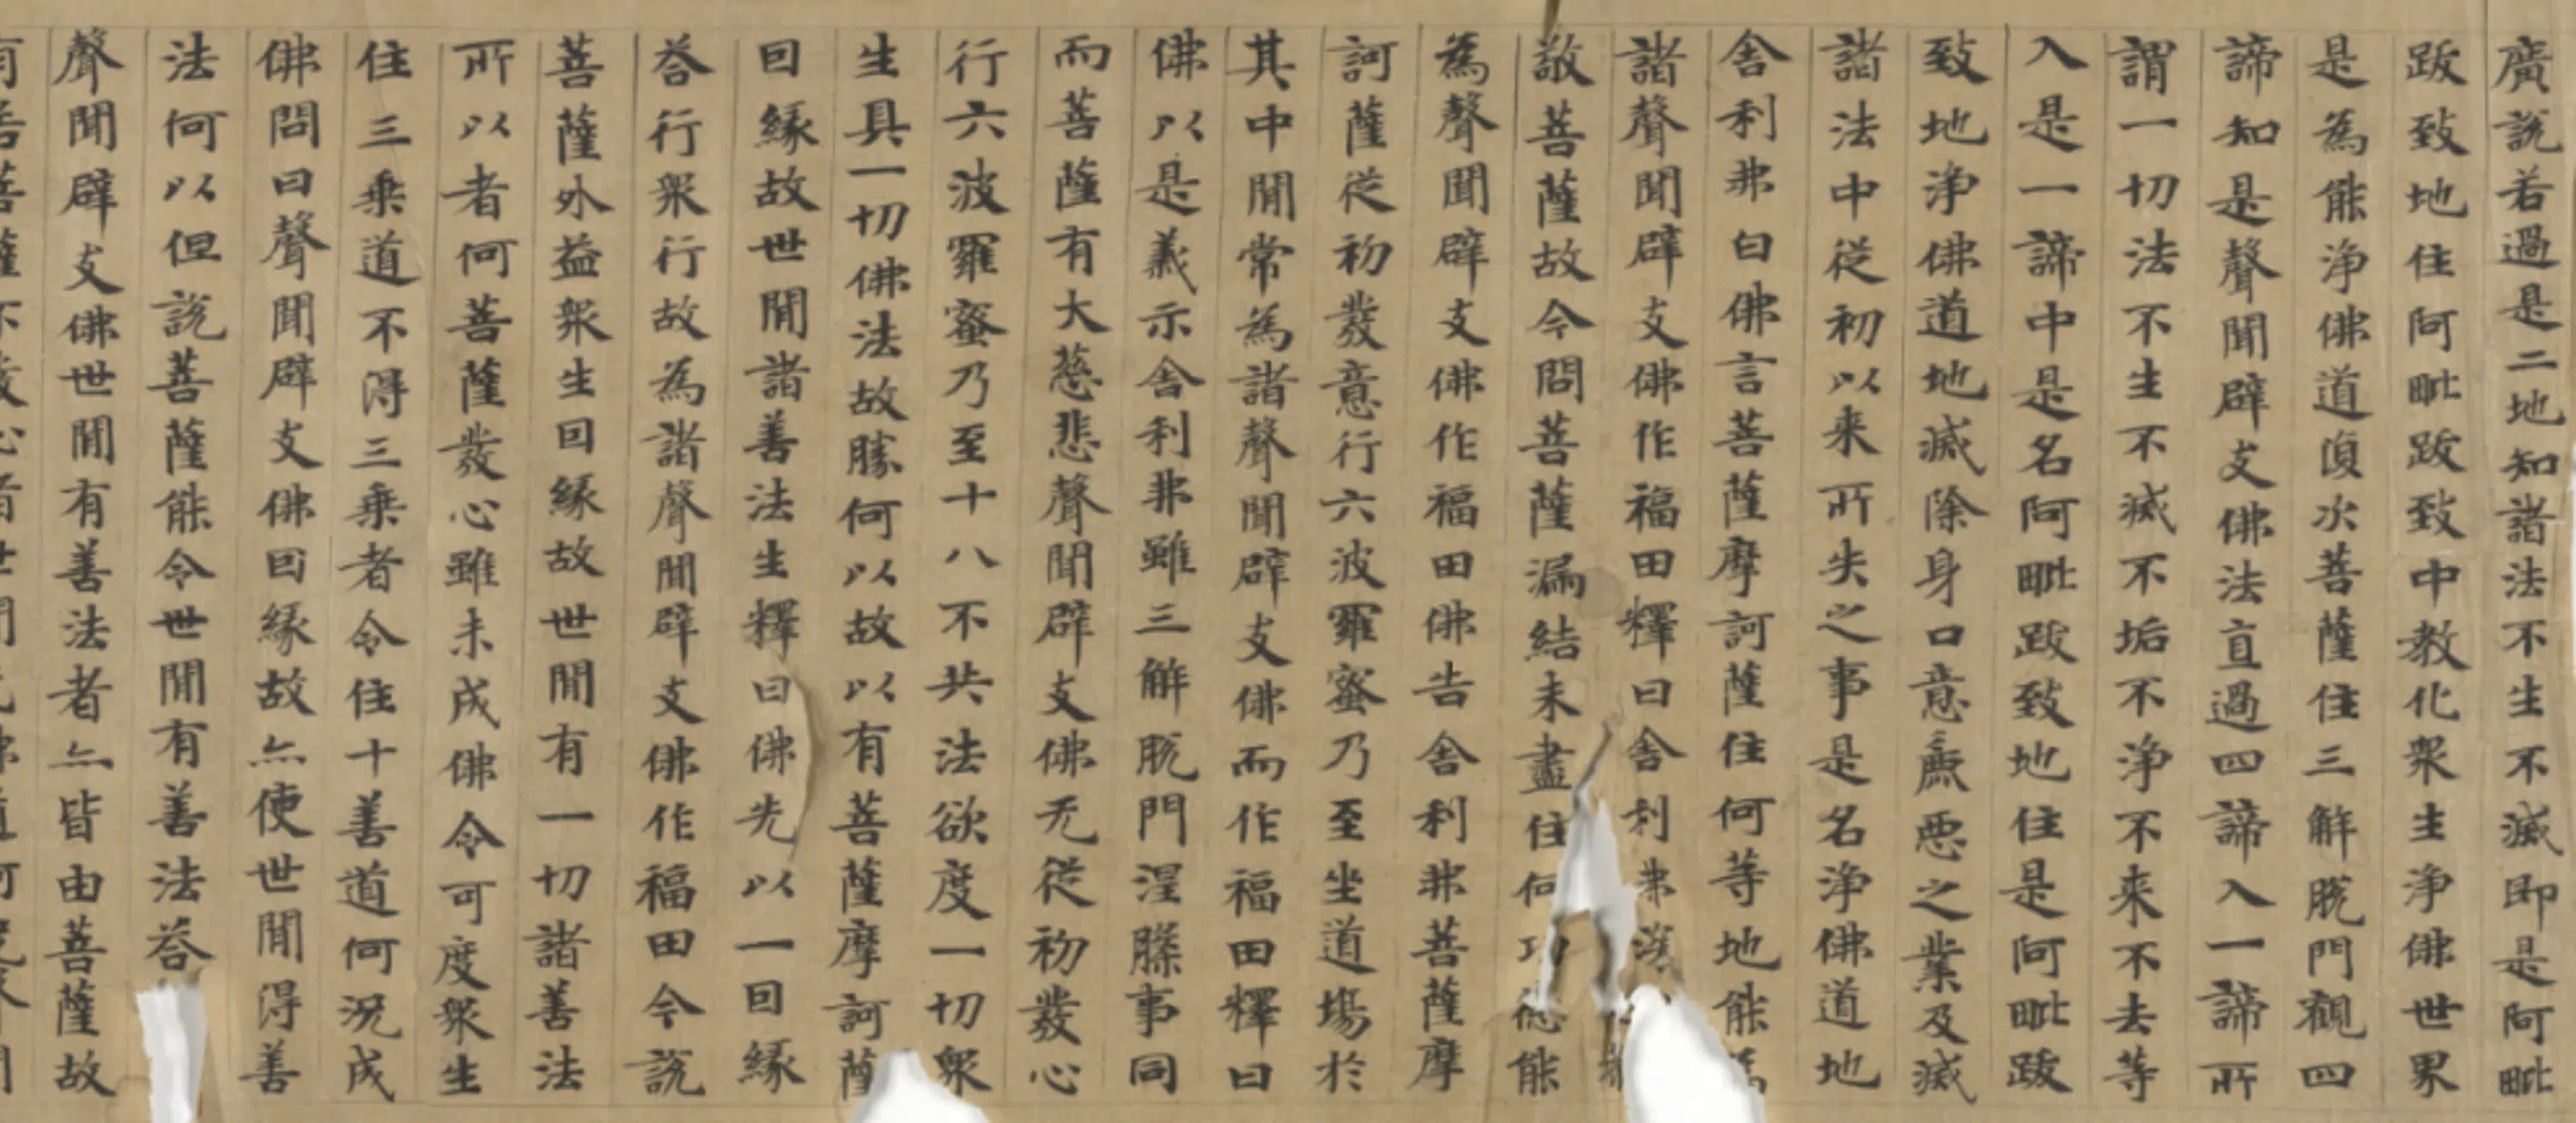 廣說若過是二地知諸法不生不滅即是阿毗
跋致地住阿毗跋致中教化衆生淨佛世界
是為能淨佛道復次菩薩住三解脫門觀四
諦知是聲聞辟支佛法直過四諦入一諦所
謂一切法不生不滅不垢不淨不來不去等
入是一諦中是名阿毗跋致地住是阿毗跋
致地淨佛道地滅除身口意麁惡之業及滅
諸法中從初以来所失之事是名淨佛道地
舍利弗白佛言菩薩摩訶薩住何等地能為
諸聲聞辟支佛作福田釋曰舍利弗漢
敬菩薩故今問菩薩漏結未盡住何功德能
為聲聞辟支佛作福田佛告舍利弗菩薩摩
訶薩從初發意行六波羅蜜乃至坐道場於
其中間常為諸聲聞辟支佛而作福田釋曰
佛以是義示舍利弗雖三解脫門涅槃事同
而菩薩有大慈悲聲聞辟支佛无從初發心
行六波羅蜜乃至十八不共法欲度一切衆
生具一切佛法故勝何以故以有菩薩摩訶薩
回緣故世間諸善法生釋曰佛先以一回緣
荅行衆行故為諸聲聞辟支佛作福田今說
菩薩外益衆生回緣故世間有一切諸善法
所以者何菩薩發心雖未成佛令可度衆生
住三乘道不得三乘者令住十善道何況成
佛問曰聲聞辟支佛回緣故亦使世間得善
法何以但說菩薩能令世間有善法荅
聲聞辟支佛世間有善法者亦皆由菩薩故
有若菩薩不發心者世間